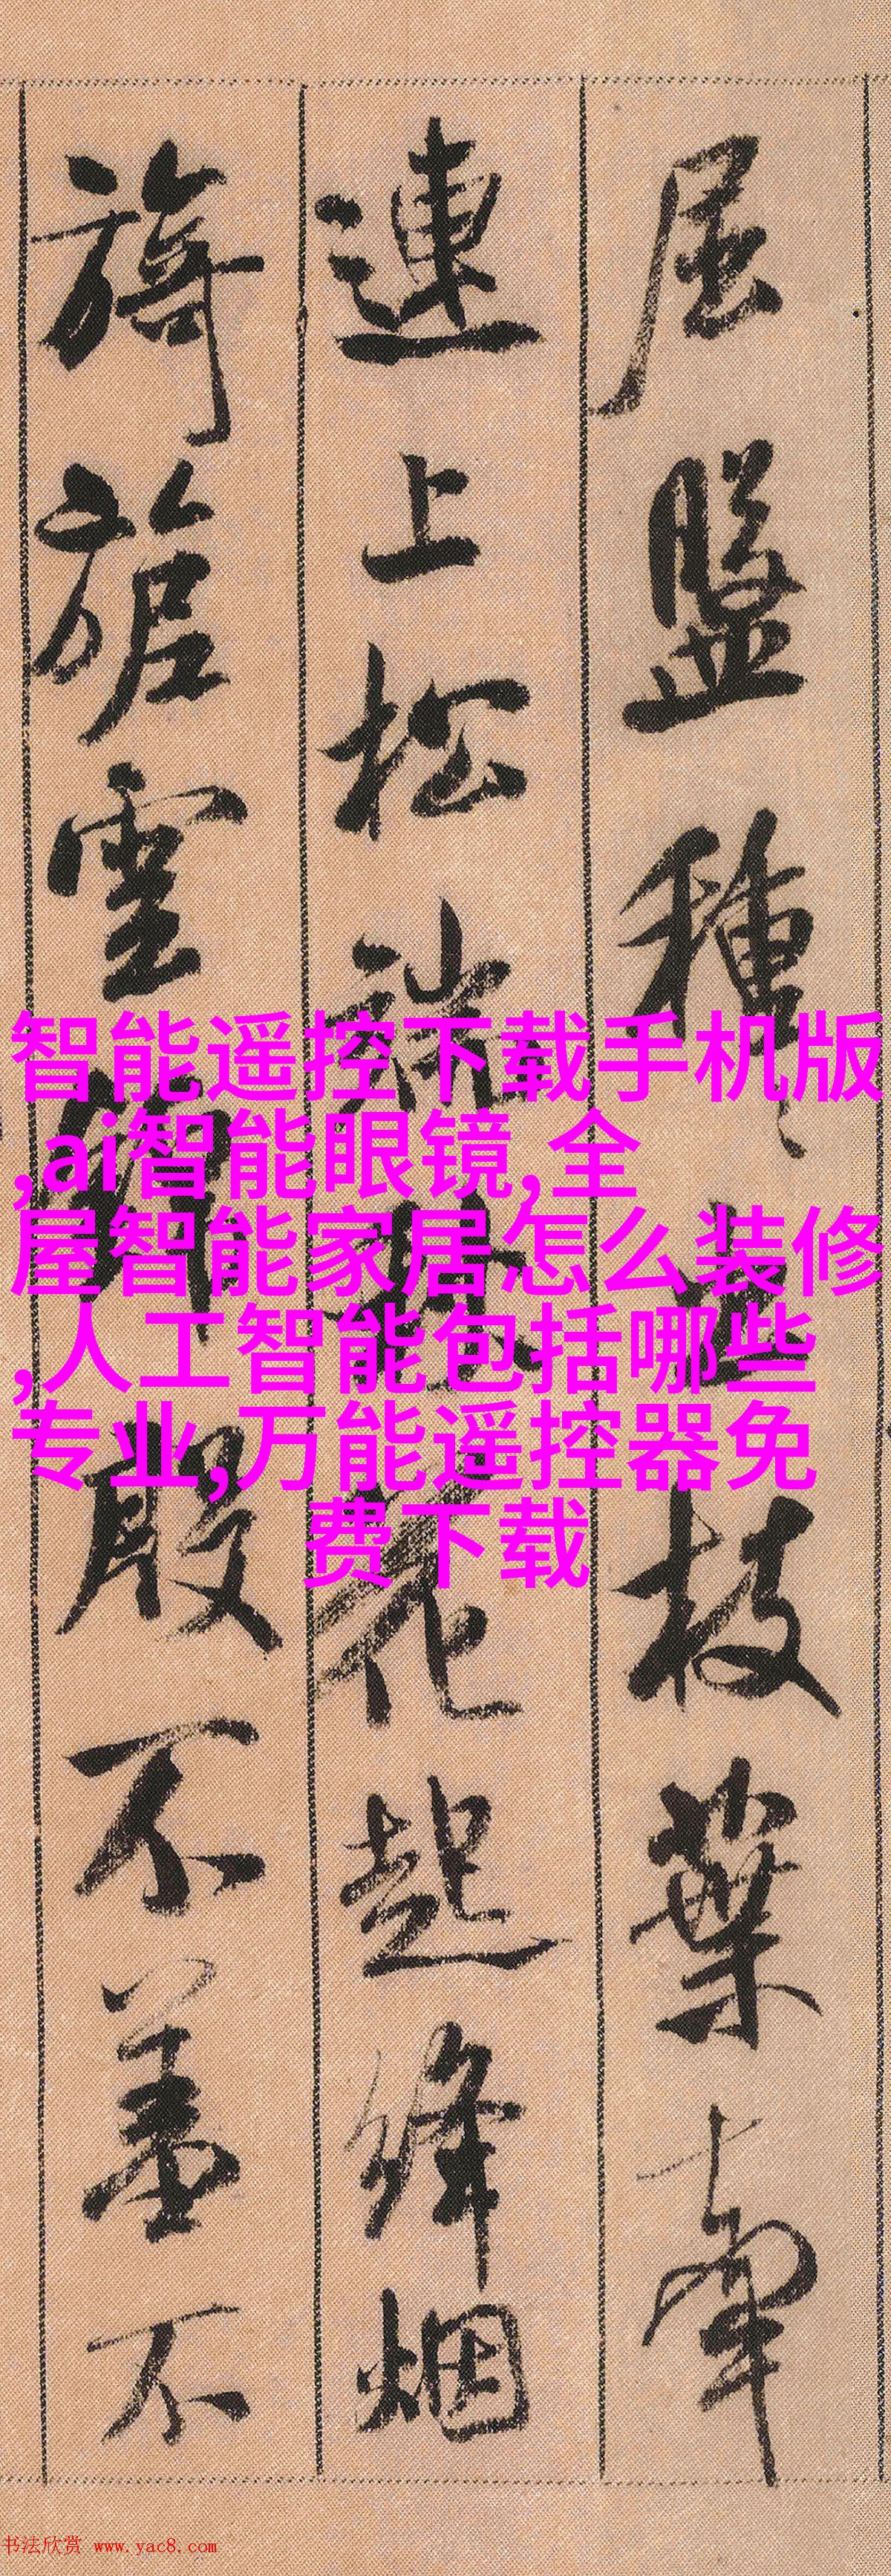 屈盤種〻出枝葉牽
連上松端秋花起絳烟
旖旎雲錦殷不羞不
智能遥控下载手机版
,ai智能眼镜,全
屋智能家居怎么装修
,人工智能包括哪些
专业,万能遥控器免
费下载
书法欣赏 www.yac8.com